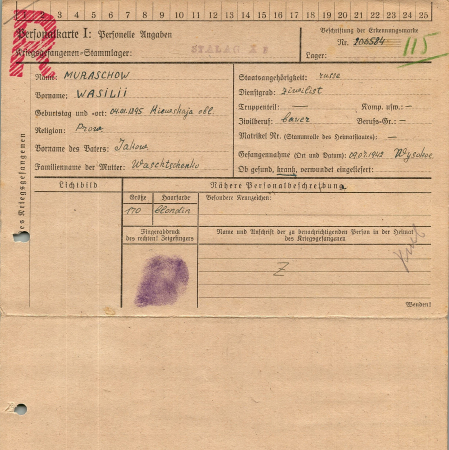 1 2 3 4 5 6 7 8 9 10 11 12 13 14 15 16 17 18 19 20 21 22 23 24 25
R
Personalkarte I: Personelle Angaben
Kriegsgefangenen-Stammlager:
STALAG X B
Beschriftung der Erkennungsmarke
Nr. 206584
115
Lager:
Name: MURASCHOW
Vorname: WASILII
Geburtstag und -ort: 04.01.1895 obl.
Religion: Prow.
Vorname des Vaters: Jakow
Familienname der Mutter: Waschtschenko
Staatsangehörigkeit: russe
Dienstgrad: ziwilist
Truppenteil: — Komp. usw.: —
Zivilberuf: bauer Berufs-Gr.: —
Matrikel Nr. (Stammrolle des Heimatstaates): —
Gefangennahme (Ort und Datum): 09.07.1943
Ob gefund, krank, verwundet eingeliefert:
des Kriegsgefangenen
Lichtbild
Nähere Personalbeschreibung
Größe
Haarfarbe
Besondere Kennzeichen:
170
blondin
Fingerabdruck
des rechten! Zeigefingers
Name und Anschrift der zu benachrichtigenden Person in der Heimat
des Kriegsgefangenen
Z
Wenden!